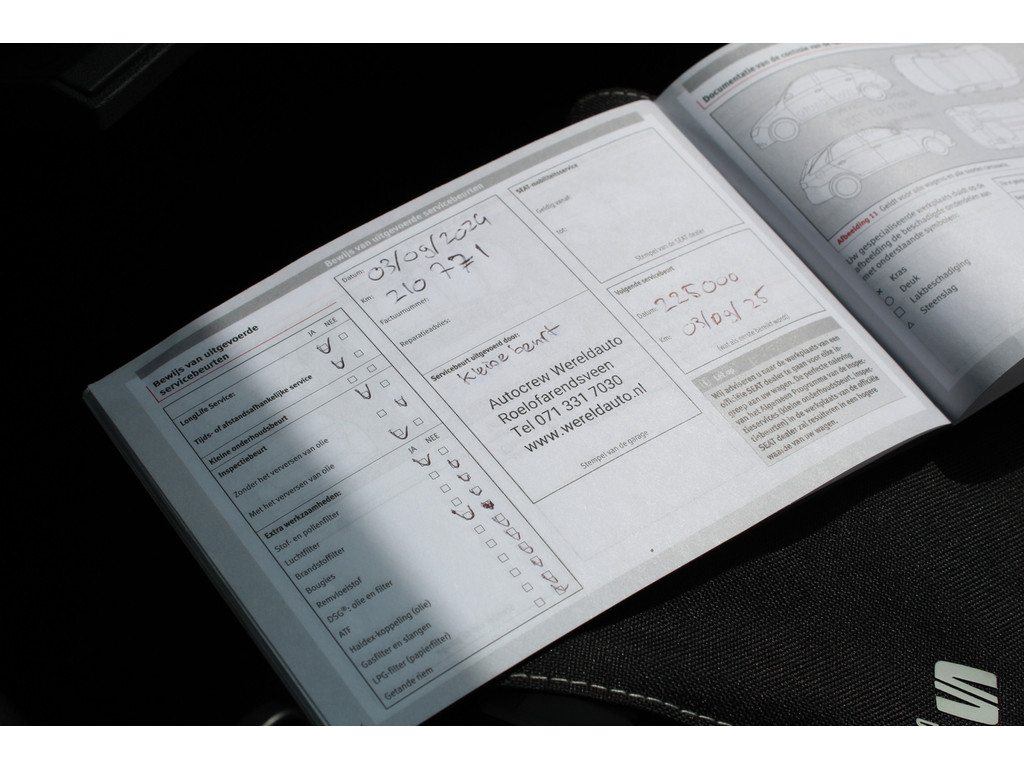 Bewijs van uitgevoerde servicebeurten
Bewijs van uitgevoerde
servicebeurten
JA NEE
LongLife Service:
Tijds- of afstandsafhankelijke service
Kleine onderhoudsbeurt
Inspectiebeurt
Zonder het verversen van olie
Met het verversen van olie
JA NEE
Extra werkzaamheden:
Stof- en pollenfilter
Luchtfilter
Brandstoffilter
Bougies
Remvloeistof
DSG®: olie en filter
ATF
Haldex-koppeling (olie)
Gasfilter en slangen
LPG-filter (papierfilter)
Getande riem
Datum: 03/09/2024
Km: 210 771
Factuurnummer:
Reparatieadvies:
Servicebeurt uitgevoerd door:
Kleine beurt
Autocrew Wereldauto
Roelofarendsveen
Tel 071 331 7030
www.wereldauto.nl
Stempel van de garage
SEAT-mobiliteitsservice
Geldig vanaf:
tot:
Stempel van de SEAT-dealer
Volgende servicebeurt
Datum: 225000
Km: 03/09/25
(wat als eerste bereikt wordt)
Wij adviseren u naar de werkplaats van een
officiële SEAT dealer te gaan voor elke in-
greep aan uw wagen. De perfecte naleving
van het Algemene Programma van de inspec-
tieservices (kleine onderhoudsbeurt, inspec-
tiebeurten) in de werkplaats van de officiële
SEAT dealer zal resulteren in een hogere
waarde van uw wagen.
Documentatie van de controle van de
Afbeelding 11 Geldt voor alle wagens en alle
Uw gespecialiseerde werkplaats duidt op de
afbeelding de beschadigde onderdelen aan
met onderstaande symbolen:
× Kras
Deuk
Lakbeschadiging
Steenslag
S